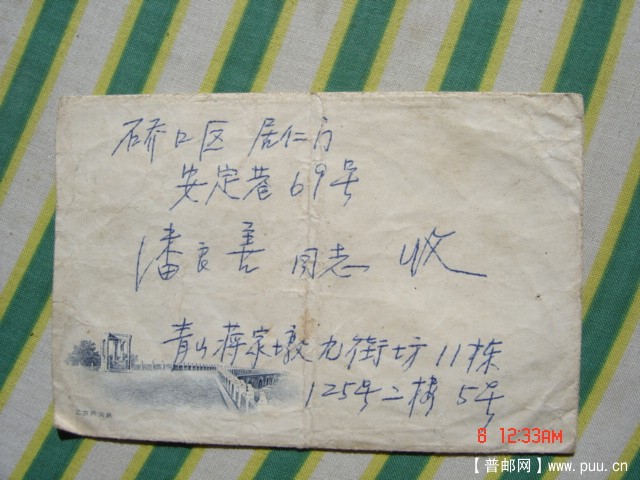 硚口区 居仁门
安定巷 69号
潘良善 同志 收
青山蒋家墩九街坊11栋
125号二楼 5号
8 12:33AM
【普邮网】www.puu.cn